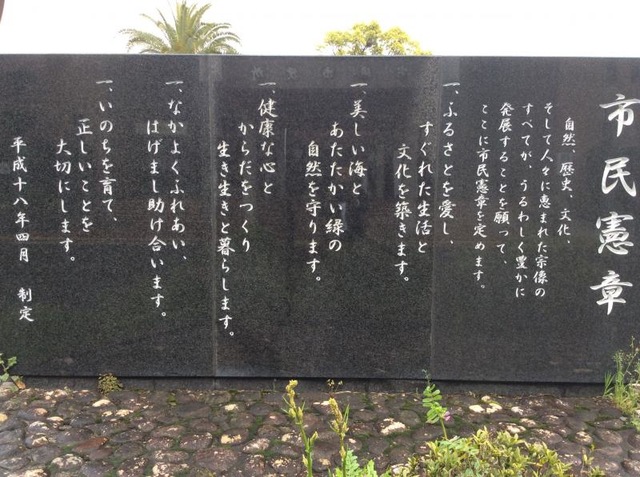 市民憲章
自然、歴史、文化、
そして人々に恵まれた宗像の
すべてが、うるわしく豊かに
発展することを願って、
ここに市民憲章を定めます。
一、ふるさとを愛し、
すぐれた生活と
文化を築きます。
一、美しい海と、
あたたかい緑の
自然を守ります。
一、健康な心と
からだをつくり
生き生きと暮らします。
一、なかよくふれあい、
はげまし助け合います。
一、いのちを育て、
正しいことを
大切にします。
平成十八年四月 制定